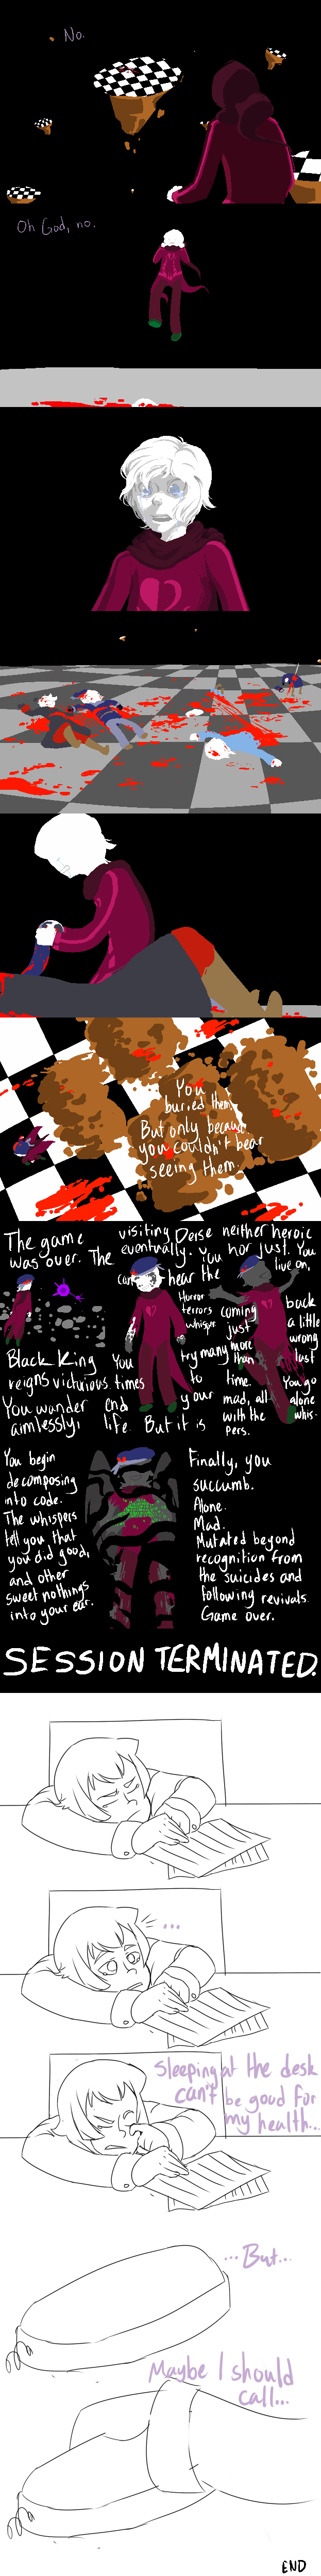 No.
Oh God, no.
You
buried them.
But only because
you couldn't bear
seeing them.
The game
was over. The
Black King
reigns victorious.
You wander
aimlessly,
visiting Derse
eventually. You
can hear the
Horror
terrors
whisper.
You try many
times to
end your
life. But it is
neither heroic
nor just. You
live on,
coming back
just a little
more wrong
than last
time. You go
mad, all alone
with the whis-
pers.
You begin
decomposing
into code.
The whispers
tell you that
you did good,
and other
sweet nothings
into your ear.
Finally, you
succumb.
Alone.
Mad.
Mutated beyond
recognition from
the suicides and
following revivals.
Game over.
SESSION TERMINATED.
...
Sleeping at the desk
can't be good for
my health...
...But...
Maybe I should
call...
END